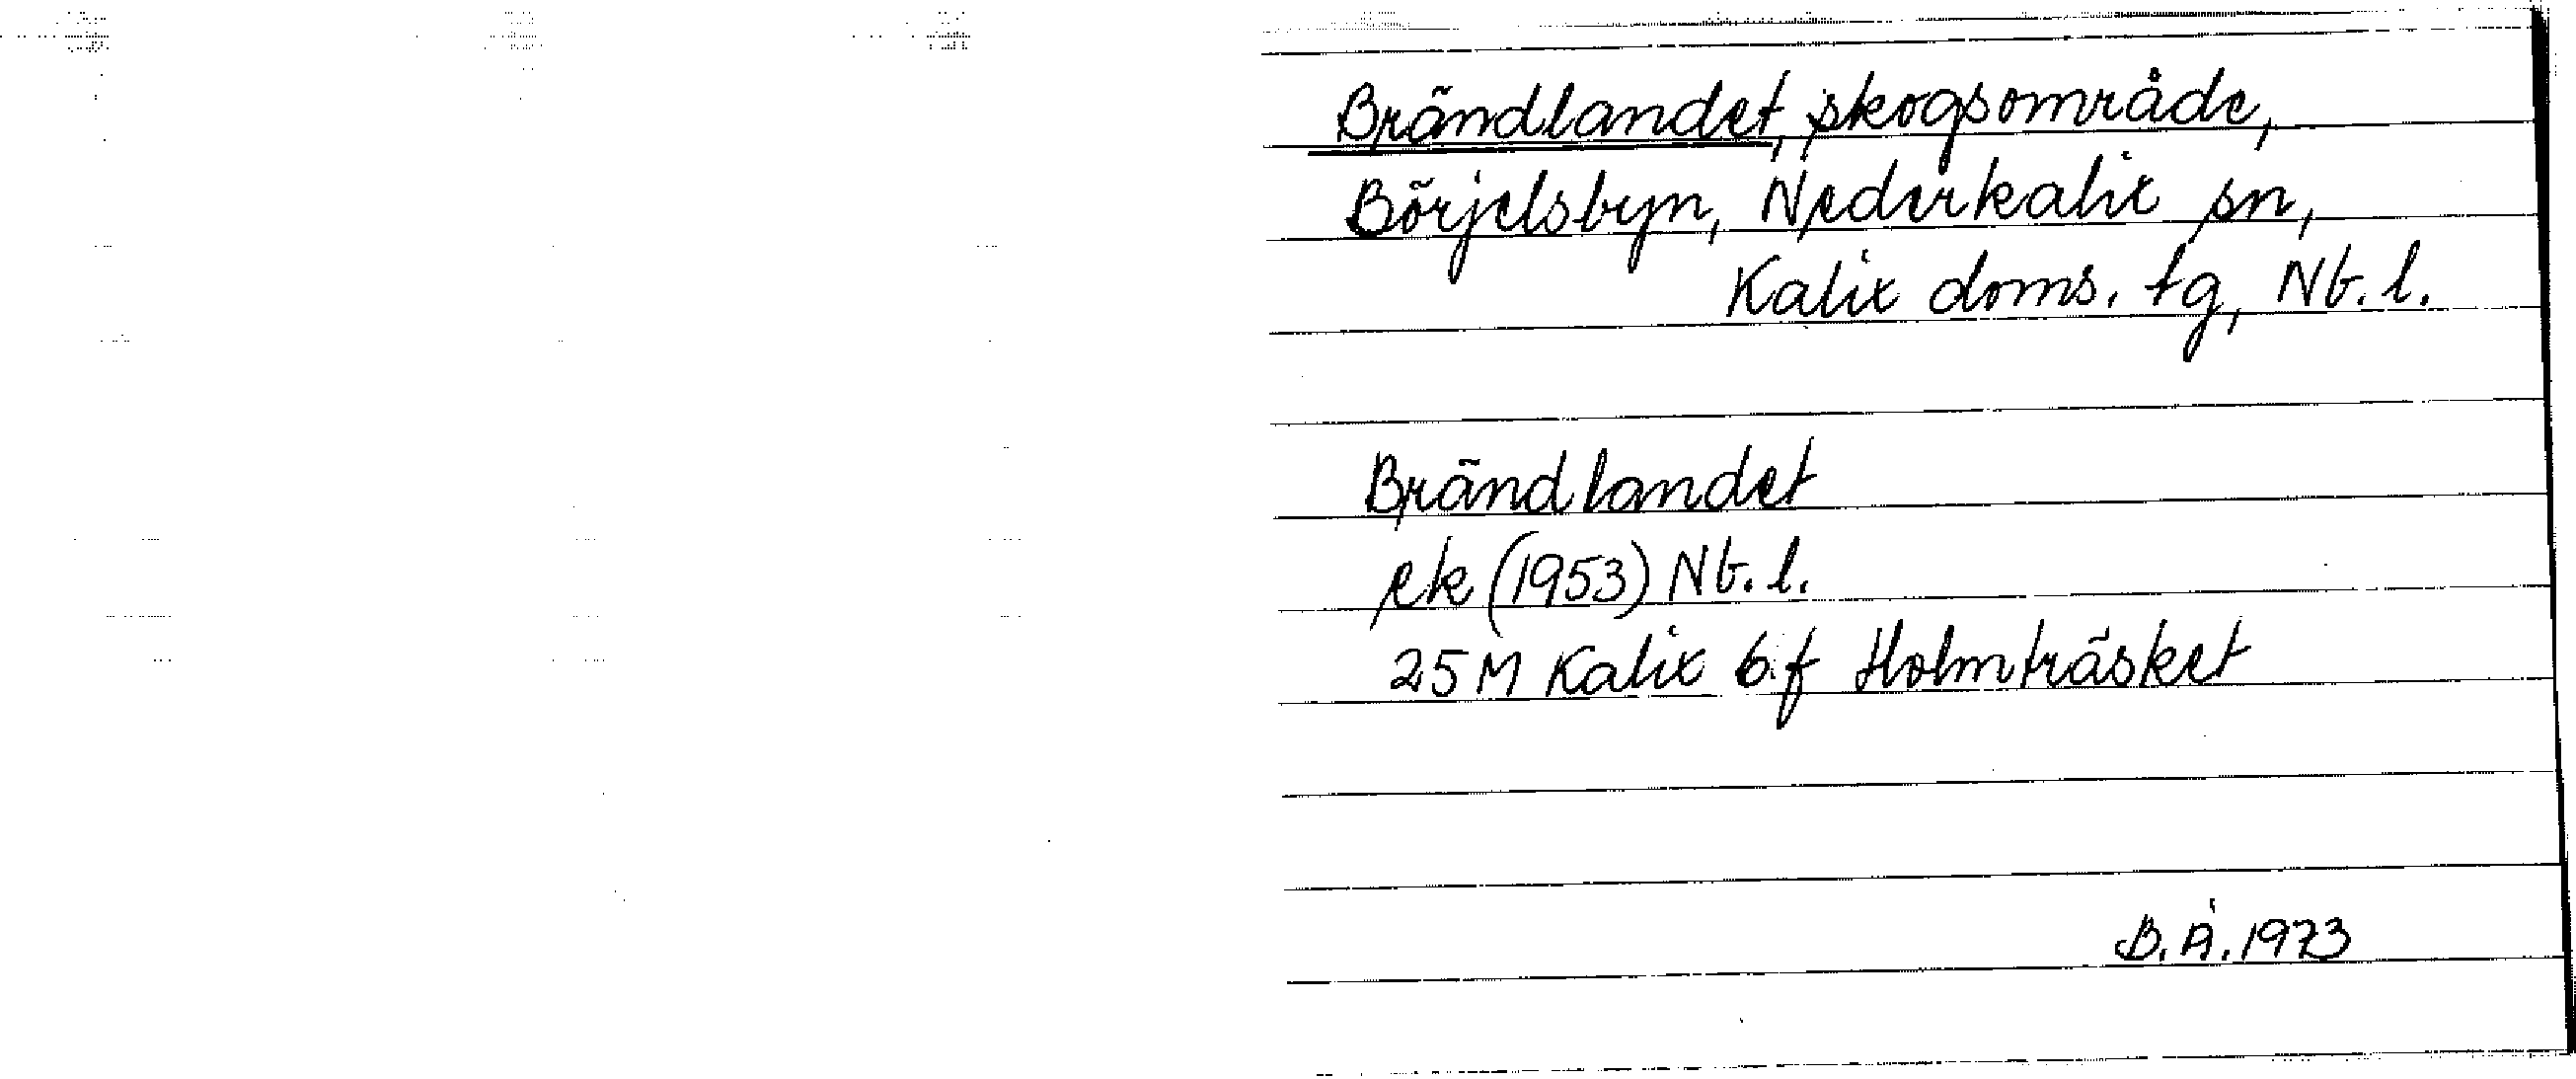 Brändlandet, skogsområde,
Börjelsbyn, Nederkalix sn,
Kalix doms. tg, Nb. l.
Brändlandet
ek (1953) Nb. l.
25 M Kalix 6 f Holmträsket
B. Å. 1973